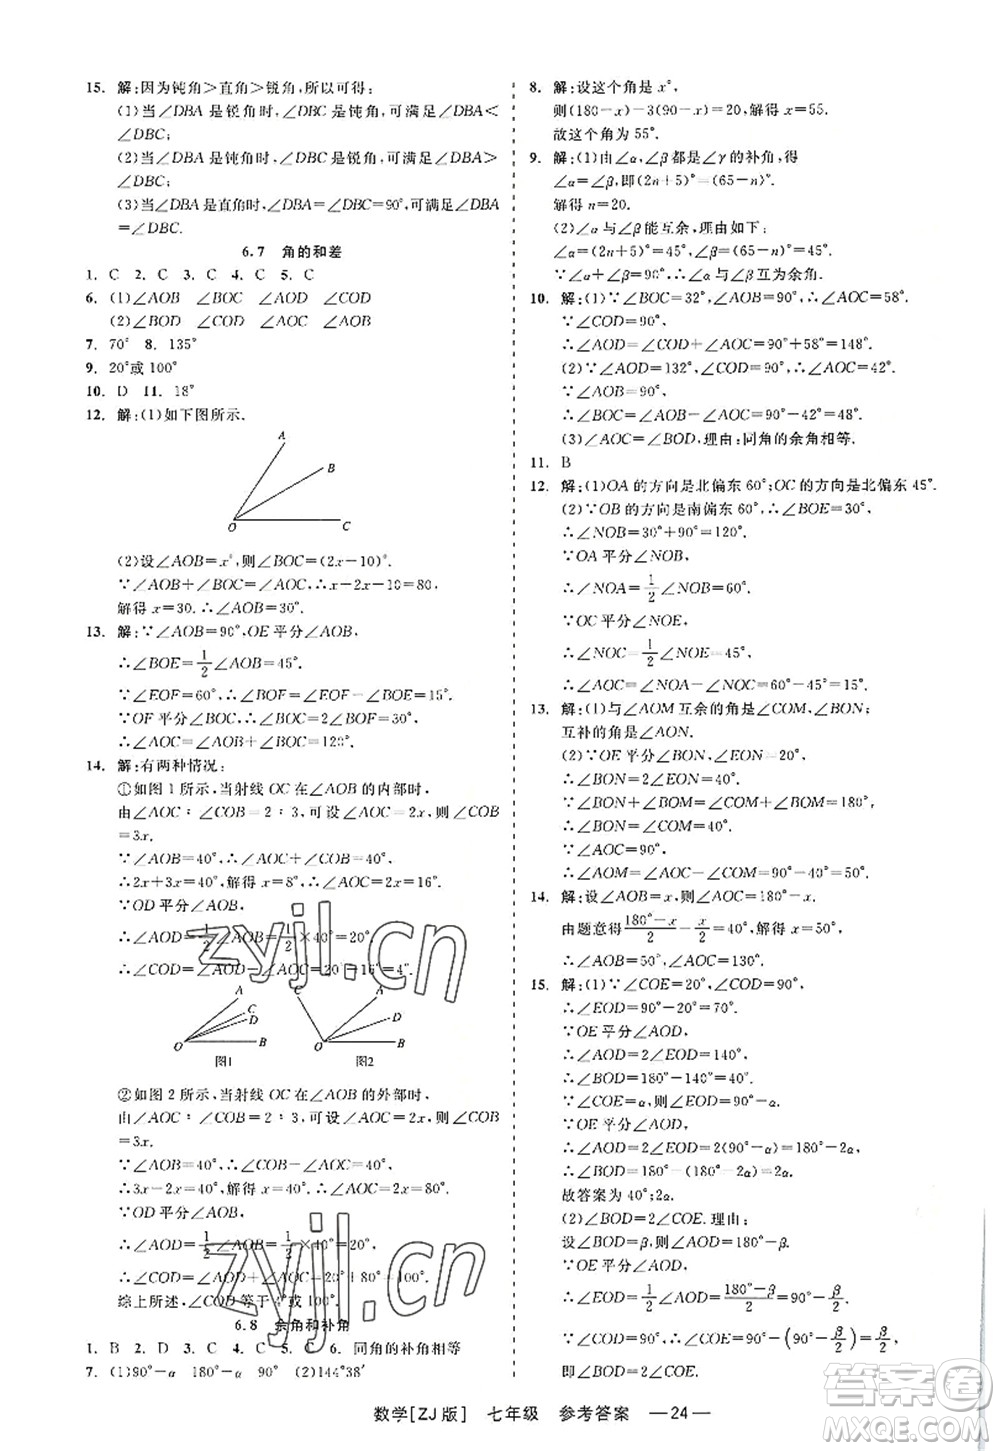 15. 解:因为钝角＞直角＞锐角,所以可得:
(1)当∠DBA是锐角时,∠DBC是钝角,可满足∠DBA＜
∠DBC;
(2)当∠DBA是钝角时,∠DBC是锐角,可满足∠DBA＞
∠DBC;
(3)当∠DBA是直角时,∠DBA=∠DBC=90°,可满足∠DBA
=∠DBC.
6.7 角的和差
1. C 2. C 3. C 4. C 5. C
6. (1)∠AOB ∠BOC ∠AOD ∠COD
(2)∠BOD ∠COD ∠AOC ∠AOB
7. 70° 8. 135°
9. 20°或100°
10. D 11. 18°
12. 解:(1)如下图所示.
A
B
O
C
(2)设∠AOB=x°,则∠BOC=(2x-10)°.
∵∠AOB+∠BOC=∠AOC,∴x+2x-10=80,
解得x=30.∴∠AOB=30°.
13. 解:∵∠AOB=90°,OE平分∠AOB,
∴∠BOE=1/2∠AOB=45°.
∵∠EOF=60°,∴∠BOF=∠EOF-∠BOE=15°.
∵OF平分∠BOC,∴∠BOC=2∠BOF=30°.
∴∠AOC=∠AOB+∠BOC=120°.
14. 解:有两种情况:
①如图1所示,当射线OC在∠AOB的内部时,
由∠AOC∶∠COB=2∶3,可设∠AOC=2x,则∠COB
=3x.
∵∠AOB=40°,∴∠AOC+∠COB=40°.
∴2x+3x=40°,解得x=8°,∴∠AOC=2x=16°.
∵OD平分∠AOB,
∴∠AOD=1/2∠AOB=1/2×40°=20°.
∴∠COD=∠AOD-∠AOC=20°-16°=4°.
A
C
D
O
B
图1
C
A
D
O
B
图2
②如图2所示,当射线OC在∠AOB的外部时,
由∠AOC∶∠COB=2∶3,可设∠AOC=2x,则∠COB
=3x.
∵∠AOB=40°,∴∠COB-∠AOC=∠AOB=40°.
∴3x-2x=40°,解得x=40°.∴∠AOC=2x=80°.
∵OD平分∠AOB,
∴∠AOD=1/2∠AOB=1/2×40°=20°.
∴∠COD=∠AOD+∠AOC=20°+80°=100°.
综上所述,∠COD等于4°或100°.
6.8 余角和补角
1. B 2. D 3. C 4. C 5. C 6. 同角的补角相等
7. (1)90°-α 180°-α 90° (2)144°38′
8. 解:设这个角是x°,
则(180-x)-3(90-x)=20,解得x=55.
故这个角为55°.
9. 解:(1)由∠α,∠β都是∠γ的补角,得
∠α=∠β,即(2n+5)°=(65-n)°.
解得n=20.
(2)∠α与∠β能互余,理由如下:
∠α=(2n+5)°=45°,∠β=(65-n)°=45°.
∵∠α+∠β=90°,∴∠α与∠β互为余角.
10. 解:(1)∵∠BOC=32°,∠AOB=90°,∴∠AOC=58°.
∵∠COD=90°,
∴∠AOD=∠COD+∠AOC=148°.
(2)∵∠AOD=132°,∠COD=90°,∴∠AOC=42°.
∵∠AOB=90°,
∴∠BOC=∠AOB-∠AOC=90°-42°=48°.
(3)∠AOC=∠BOD,理由:同角的余角相等.
11. B
12. 解:(1)OA的方向是北偏东60°;OC的方向是北偏东45°.
(2)∵OB的方向是南偏东60°,∴∠BOE=30°.
∴∠NOB=30°+90°=120°.
∵OA平分∠NOB,
∴∠NOA=1/2∠NOB=60°.
∵OC平分∠NOE,
∴∠NOC=1/2∠NOE=45°.
∴∠AOC=∠NOA-∠NOC=60°-45°=15°.
13. 解:(1)与∠AOM互余的角是∠COM,∠BON;
互补的角是∠AON.
(2)∵OE平分∠BON,∠EON=20°,
∴∠BON=2∠EON=40°.
∵∠BON+∠BOM=∠COM+∠BOM=180°,
∴∠BON=∠COM=40°.
∵∠AOC=90°,
∴∠AOM=∠AOC-∠COM=90°-40°=50°.
14. 解:设∠AOB=x,则∠AOC=180°-x.
由题意得(180°-x)/2-x/2=40°,解得x=50°,
∴∠AOB=50°,∠AOC=130°.
15. 解:(1)∵∠COE=20°,∠COD=90°,
∴∠EOD=90°-20°=70°.
∵OE平分∠AOD,
∴∠AOD=2∠EOD=140°,
∴∠BOD=180°-140°=40°.
∵∠COE=α,∠EOD=90°-α,
∵OE平分∠AOD,
∴∠AOD=2∠EOD=2(90°-α)=180°-2α,
∴∠BOD=180°-(180°-2α)=2α.
故答案为40°;2α.
(2)∠BOD=2∠COE.理由:
设∠BOD=β,则∠AOD=180°-β,
∵OE平分∠AOD,
∴∠EOD=1/2∠AOD=(180°-β)/2=90°-β/2.
∵∠COD=90°,∴∠COE=90°-(90°-β/2)=β/2,
即∠BOD=2∠COE.
数学[ZJ版] 七年级 参考答案 —24—
zyjl.cn
zyjl.cn
答案圈
MXQE.COM